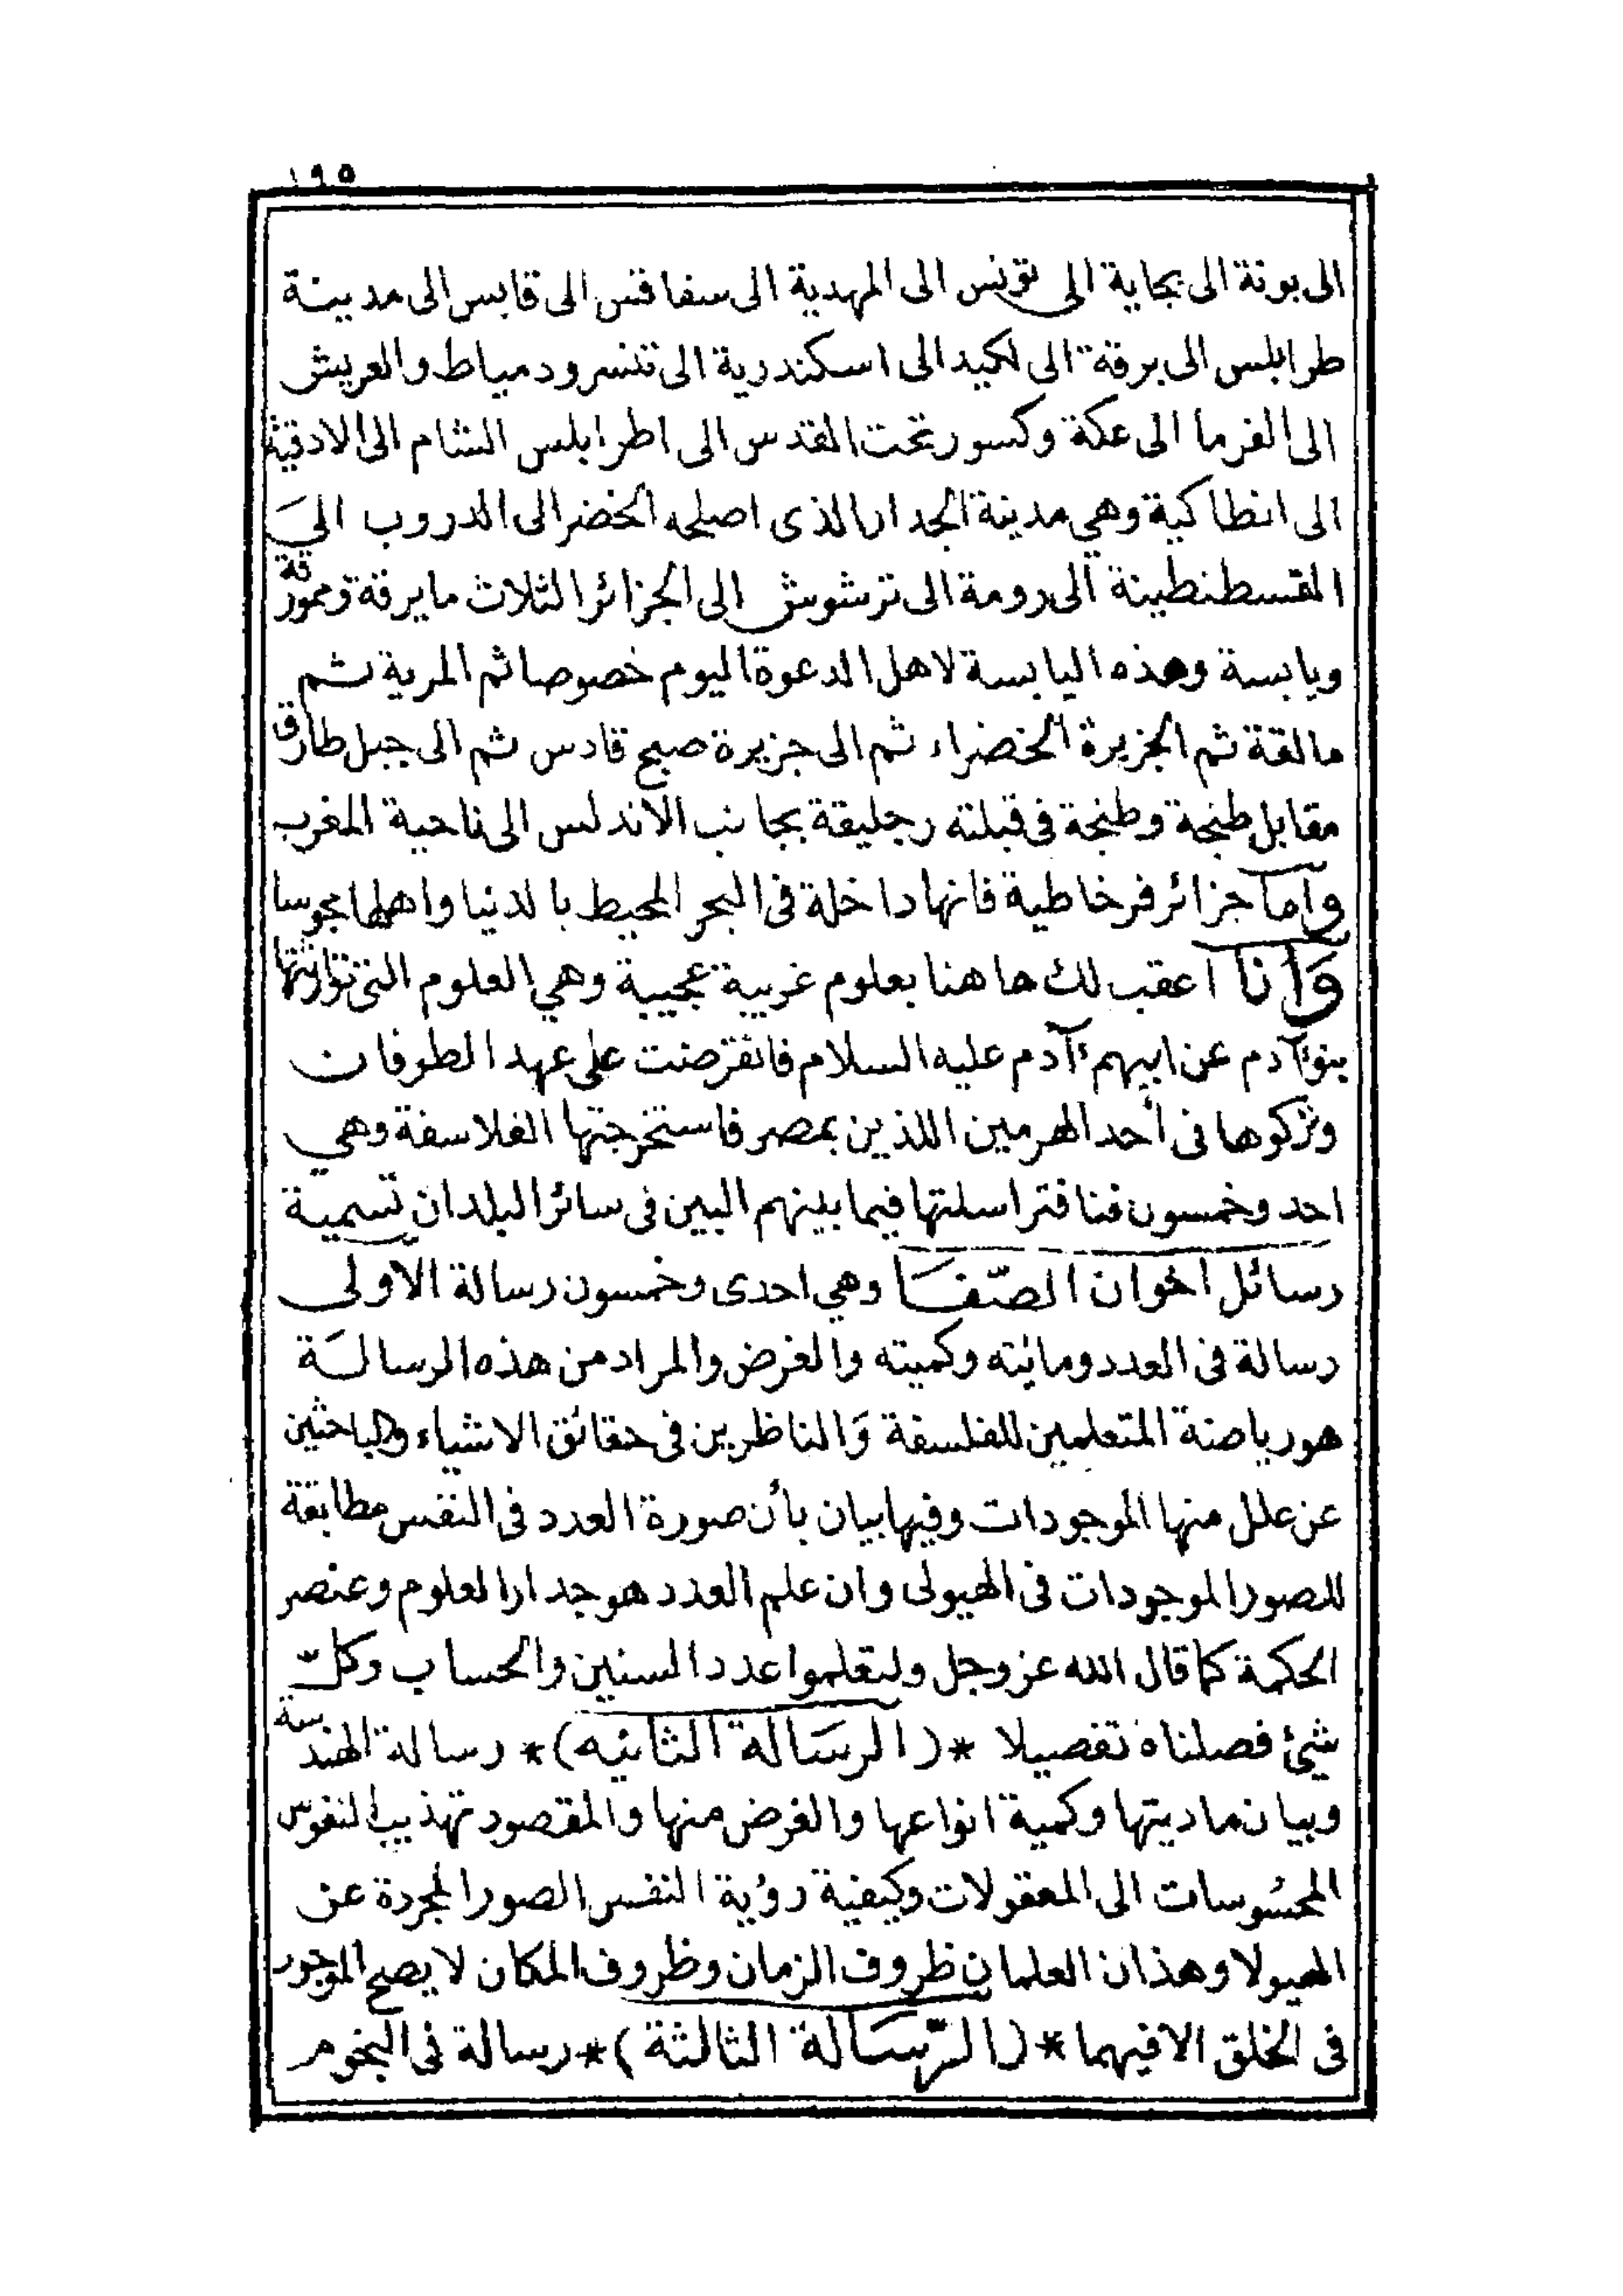 ١٩٥
الى بونة الى بجاية الى تونس الى المهدية الى سفاقس الى قابس الى مدينة
طرابلس الى برقة الى لكيد الى اسكندرية الى تنسر ودمياط والعريش
الى الفرما الى عكة وكسور تحت القدس الى اطرابلس الشام الى الادقية
الى انطاكية وهي مدينة الجدار الذى اصلحه الخضر الى الدروب الى
القسطنطينة الى رومة الى ترشوش الى الجزائر الثلاث مايرقة وممورقة
ويابسة وهذه اليابسة لاهل الدعوة اليوم خصوصا ثم المرية ثم
مالقة ثم الجزيرة الخضراء ثم الى جزيرة صبح قادس ثم الى جبل طارق
مقابل طنجة وطنجة فى قبلته رجليقة بجانب الاندلس الى ناحية المغرب
وأما جزائر فرخاطية فانها داخلة فى البحر المحيط بالدنيا واهلها مجوسا
وَأنا اعقب لك هاهنا بعلوم غريبة عجيبة وهي العلوم التى توارثتها
بنو آدم عن ابيهم آدم عليه السلام فانقرضت على عهد الطوفان
وتركوها فى أحد الهرمين اللذين بمصر فاستخرجتها الفلاسفة وهي
احد وخمسون فنا فتراسلتها فيما بينهم البين فى سائر البلدان تسمية
رسائل اخوان الصّفَا وهي احدى وخمسون رسالة الاولى
رسالة فى العدد ومائيته وكميته والغرض والمراد من هذه الرسالَة
هو رياضة المتعلمين للفلسفة وَالناظرين فى حقائق الاشياء والباحثين
عن علل منها الموجودات وفيها بيان بأن صورة العدد فى النفس مطابقة
للصور الموجودات فى الهيولى وان علم العدد هو جدار العلوم وعنصر
الحكمة كما قال الله عز وجل ولتعلموا عدد السنين والحساب وكلّ
شيئ فصلناه تفصيلا *(الرسَالة الثانيه)* رسالة الهندسة
وبيان ماديتها وكمية انواعها والغرض منها والمقصود تهذيب النفوس
المحسُوسات الى المعقولات وكيفية رؤية النفس الصور المجردة عن
الهيولا وهذان العلمان ظروف الزمان وظروف المكان لا يصح الموجود
فى الخلق الا فيهما *(الرّسَالة الثالثة)* رسالة فى النجوم